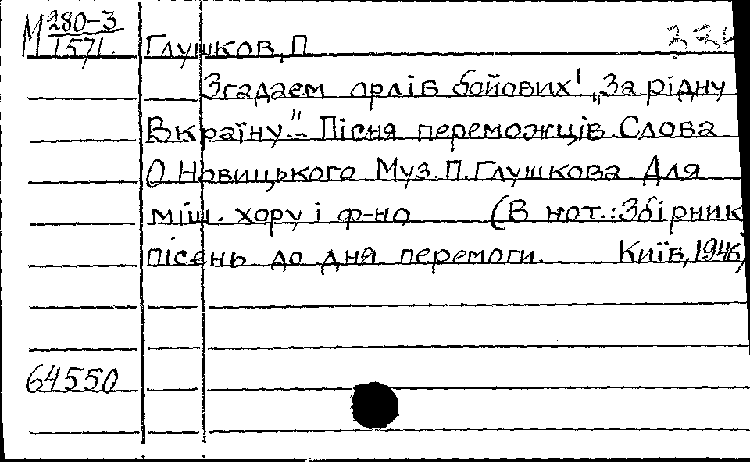 М 280-3
1571.
Глушков, П
Згадаем орлів бойових! „За рідну
Вкраїну". – Пісня переможців. Слова
О. Новицького Муз. П. Глушкова Для
міш. хору і ф-но (В нот.: Збірник
пісень до дня перемоги. Київ, 1946)
64550